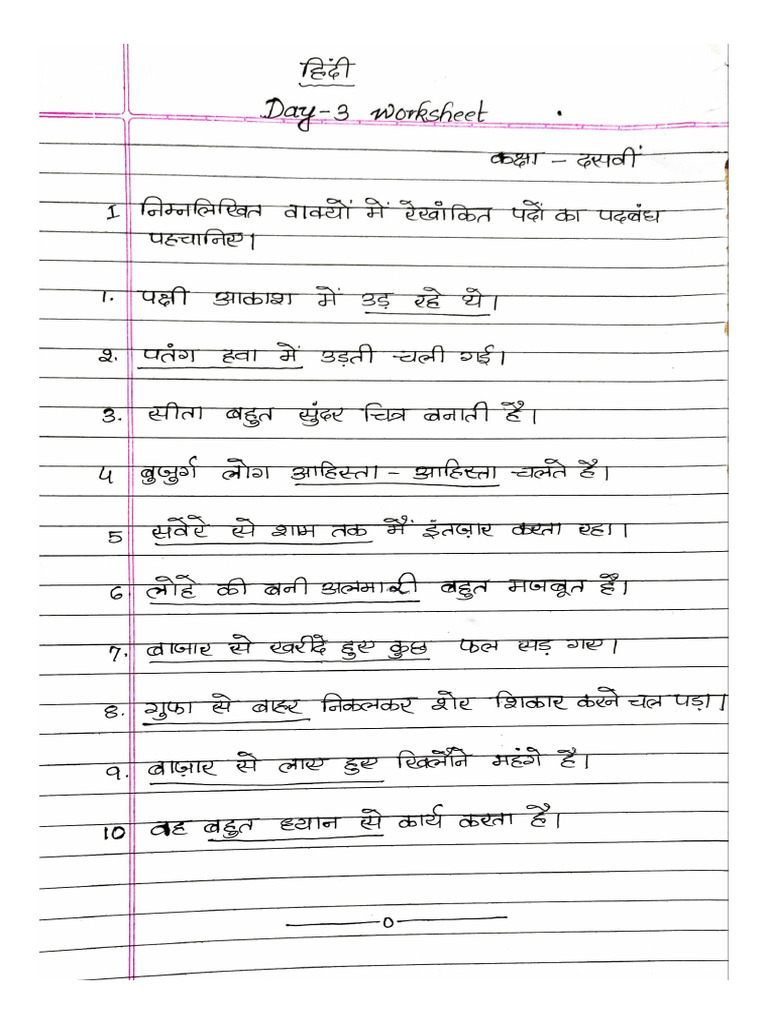 हिंदी
Day-3 Worksheet
कक्षा - दसवीं
I निम्नलिखित वाक्यों में रेखांकित पदों का पदबंध
पहचानिए।
1. पक्षी आकाश में उड़ रहे थे।
2. पतंग हवा में उड़ती चली गई।
3. सीता बहुत सुंदर चित्र बनाती है।
4 बुजुर्ग लोग आहिस्ता - आहिस्ता चलते है।
5 सवेरे से शाम तक मैं इंतज़ार करता रहा।
6. लोहे की बनी अलमारी बहुत मजबूत है।
7. बाजार से खरीदे हुए कुछ फल सड़ गए।
8. गुफा से बाहर निकलकर शेर शिकार करने चल पड़ा।
9. बाज़ार से लाए हुए खिलौने महंगे है।
10 वह बहुत ध्यान से कार्य करता है।